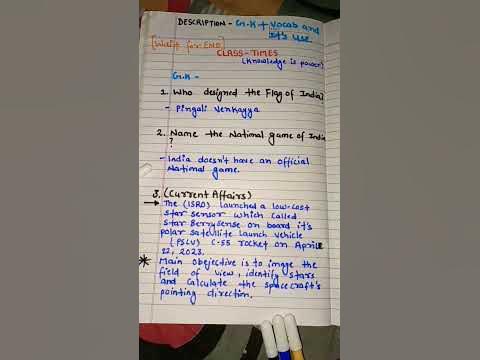 DESCRIPTION - G.K + Vocab and
It's use.
[Wait for END]
CLASS-TIMES
(Knowledge is power)
G.K -
1. Who designed the Flag of India?
- Pingali Venkayya
2. Name the National game of India
?
- India doesn't have an official
National game.
3. (Current Affairs)
→ The (ISRO) launched a low-cost
star sensor which called
StarBerrySense on board it's
polar satellite launch vehicle
(PSLV) C-55 rocket on April
22, 2023.
* Main obejective is to image the
field of view, identify stars
and calculate the spacecraft's
pointing direction.